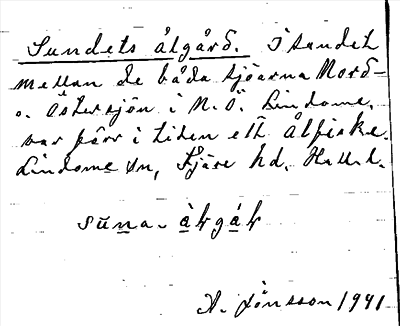 Sundets ålgård. I sundet
mellan de båda sjöarna Nord-
o. Östersjön i N.Ö. Lindome,
var förr i tiden ett Ålfiske.
Lindome sn, Fjäre hd. Halland.
A. Jönsson 1941